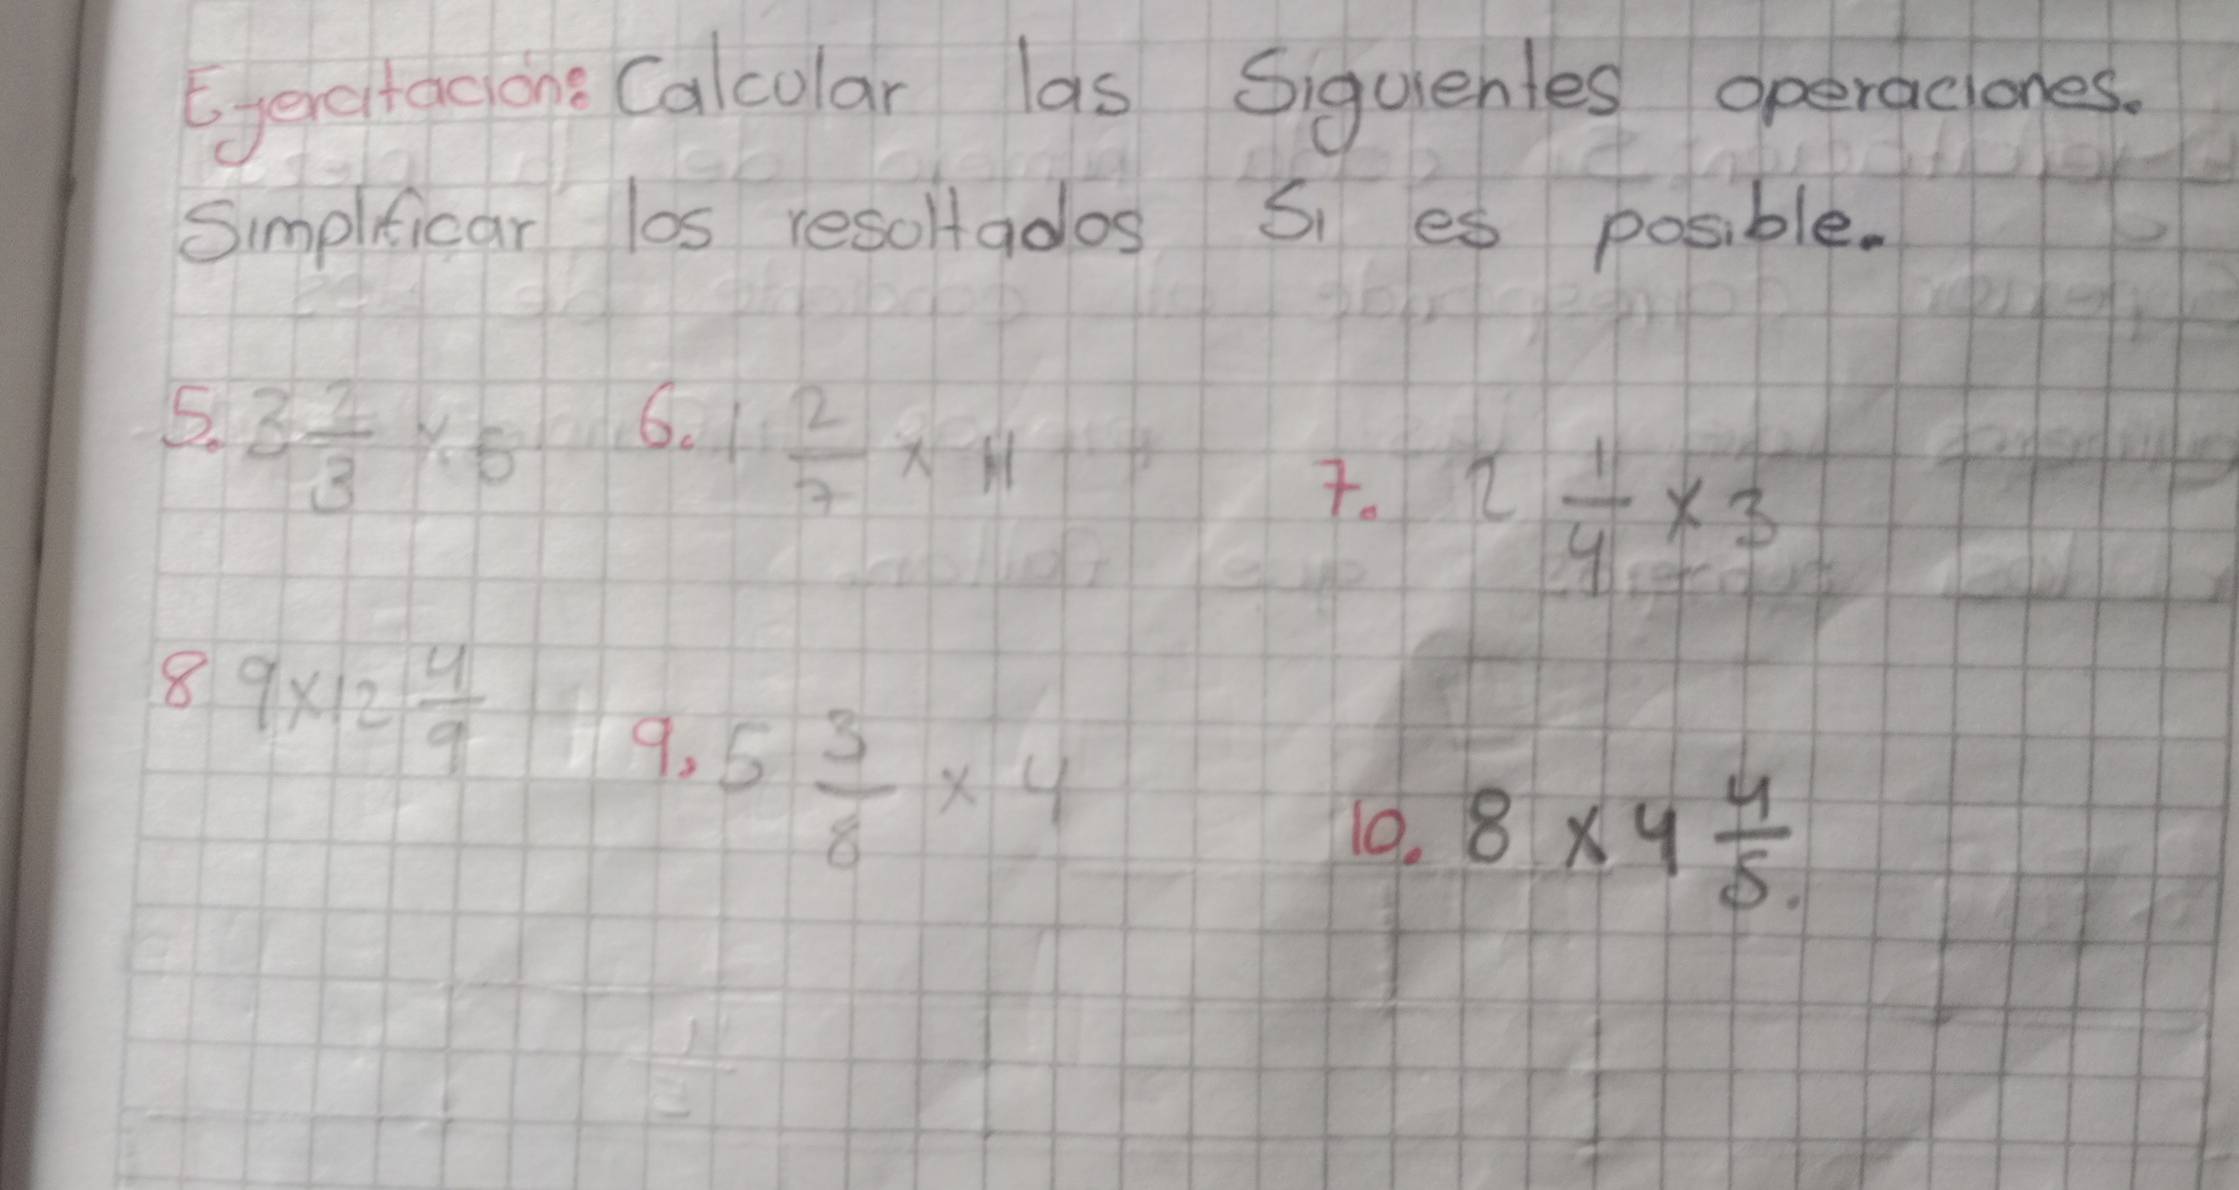 Ejercitación: Calcular las Siguientes operaciones.
Simplificar los resultados Si es posible.
5. 3 2/3 × 5 6. 1 2/7 × 11 7. 2 1/4 × 3
8 9×12 4/9 9. 5 3/8 × 4 10. 8 × 4 4/5.